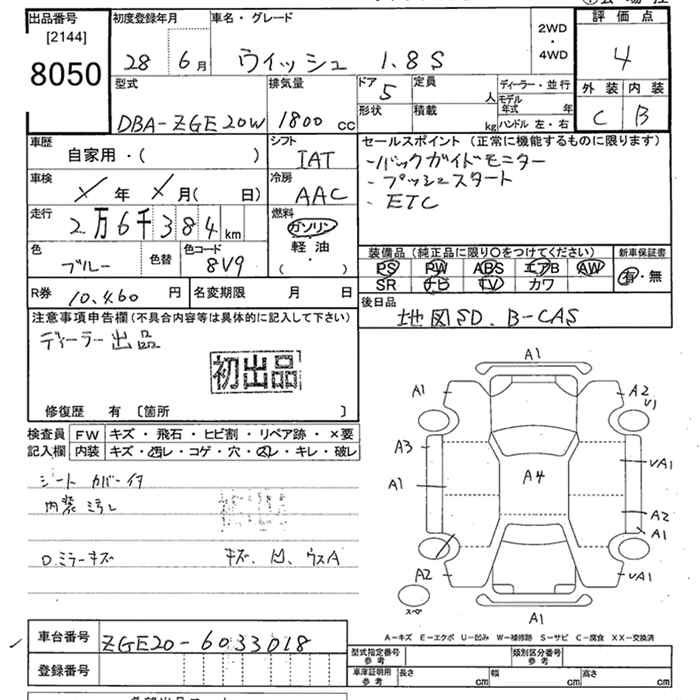 出品番号 初度登録年月 車名・グレード 評価点
[2144]
8050
28 6月 ウィッシュ 1.8S 2WD・4WD 4
型式 排気量 ドア 定員 ディーラー・並行 外装 内装
DBA-ZGE20W 1800cc 5 人 モデル年式 年 C B
形状 積載 kg ハンドル 左・右
車歴 シフト セールスポイント (正常に機能するものに限ります)
自家用・( ) IAT ・バックガイドモニター
車検 冷房 ・プッシュスタート
年 月(日) AAC ・ETC
走行 燃料
2万6千384km ガソリン
色 色替 色コード 軽油
ブルー 8V9 ・( )
装備品 (純正品に限り〇をつけてください) 新車保証書
PS PW ABS エアB AW 有・無
SR ナビ TV カワ
R券 10,460円 名変期限 月 日 後日品
地図SD、B-CAS
注意事項申告欄(不具合内容等は具体的に記入して下さい)
ディーラー出品
初出品
修復歴 有 [箇所 ]
検査員 FW キズ・飛石・ヒビ割・リペア跡・×要
記入欄 内装 キズ・汚レ・コゲ・穴・スレ・キレ・破レ
シートカバー付
内装ミラレ
D.ミラーキズ キズ、凹、ウスA
A1
A1 A2
V1
A3
VA1
A1 A4
A2
A1
A2 VA1
スペア
A1
A-キズ E-エクボ U-凹み W-補修跡 S-サビ C-腐食 XX-交換済
車台番号 ZGE20-6033018
登録番号
型式指定番号 参考 類別区分番号 参考
車庫証明用 参考 長さ cm 幅 cm 高さ cm